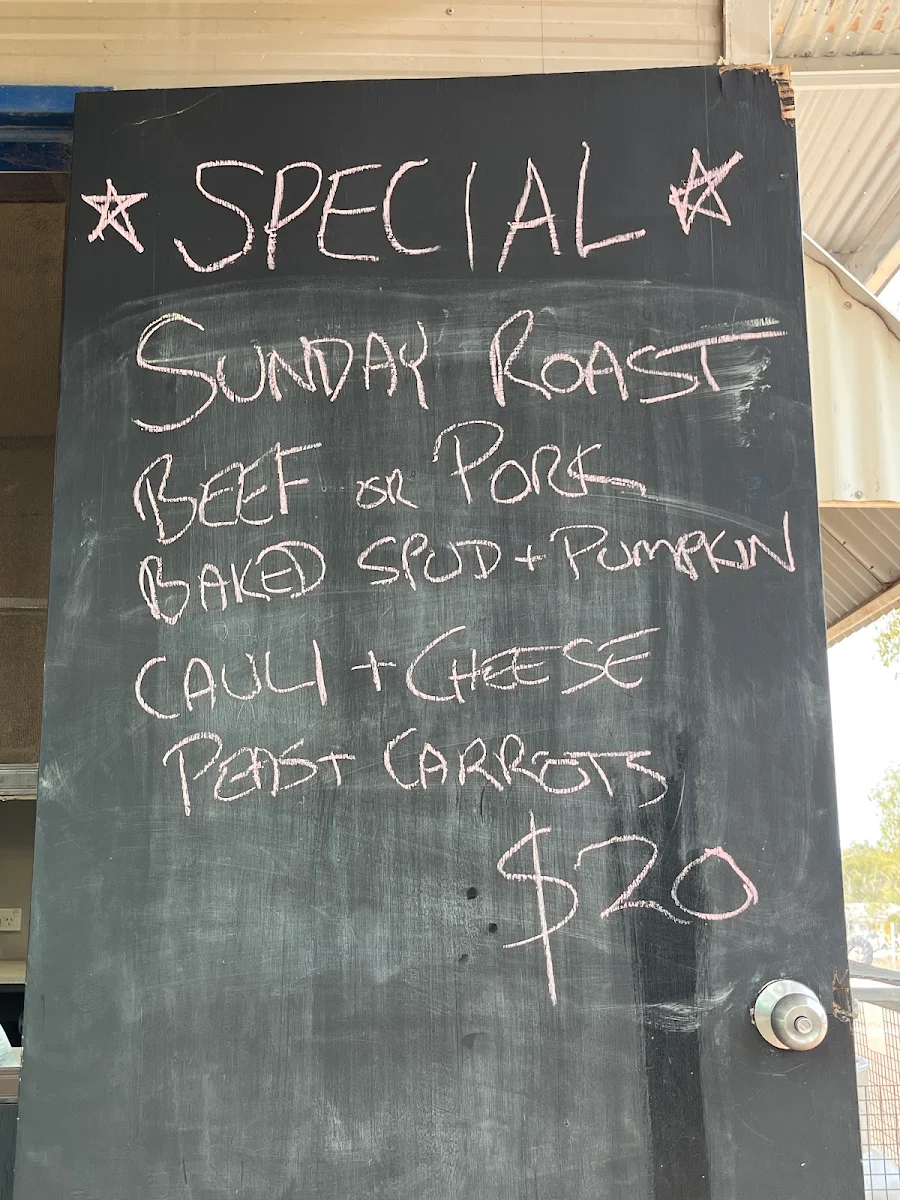 ☆ SPECIAL ☆
SUNDAY ROAST
BEEF OR PORK
BAKED SPUD + PUMPKIN
CAULI + CHEESE
PEAS + CARROTS
$20